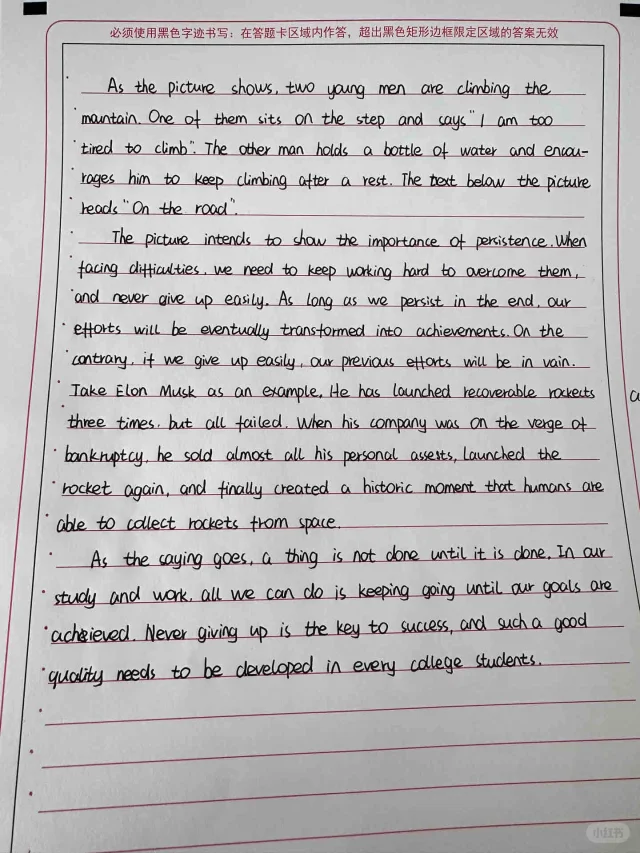 必须使用黑色字迹书写：在答题卡区域内作答，超出黑色矩形边框限定区域的答案无效
As the picture shows, two young men are climbing the
mantain. One of them sits on the step and says "I am too
tired to climb". The other man holds a bottle of water and encou-
rages him to keep climbing after a rest. The text below the picture
reads "On the road".
The picture intends to show the importance of percistence. When
facing difficulties, we need to keep working hard to overcome them,
and never give up easily. As long as we persist in the end, our
efforts will be eventually transformed into achievements. On the
contrary, if we give up easily, our previous efforts will be in vain.
Take Elon Musk as an example. He has launched recoverable rockects
three times, but all failed. When his company was on the verge of
bankruptcy, he sold almost all his personal assests, launched the
rocket again, and finally created a historic moment that humans are
able to collect rockets from space.
As the saying goes, a thing is not done until it is done. In our
study and work, all we can do is keeping going until our goals are
achieved. Never giving up is the key to success, and such a good
quality needs to be developed in every college students.
小红书